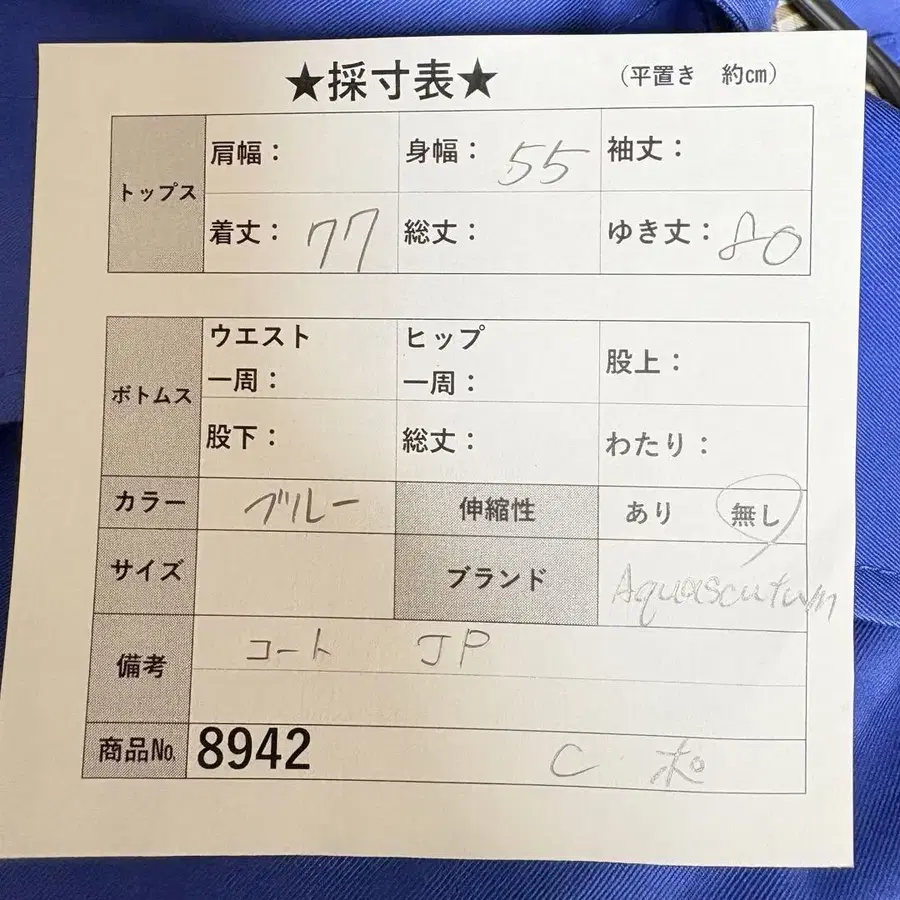 ★採寸表★ （平置き 約㎝）
トップス
肩幅： 身幅：55 袖丈：
着丈：77 総丈： ゆき丈：80
ボトムス
ウエスト一周： ヒップ一周： 股上：
股下： 総丈： わたり：
カラー ブルー 伸縮性 あり 無し
サイズ ブランド Aquascutum
備考 コート JP
商品№ 8942 C ポ